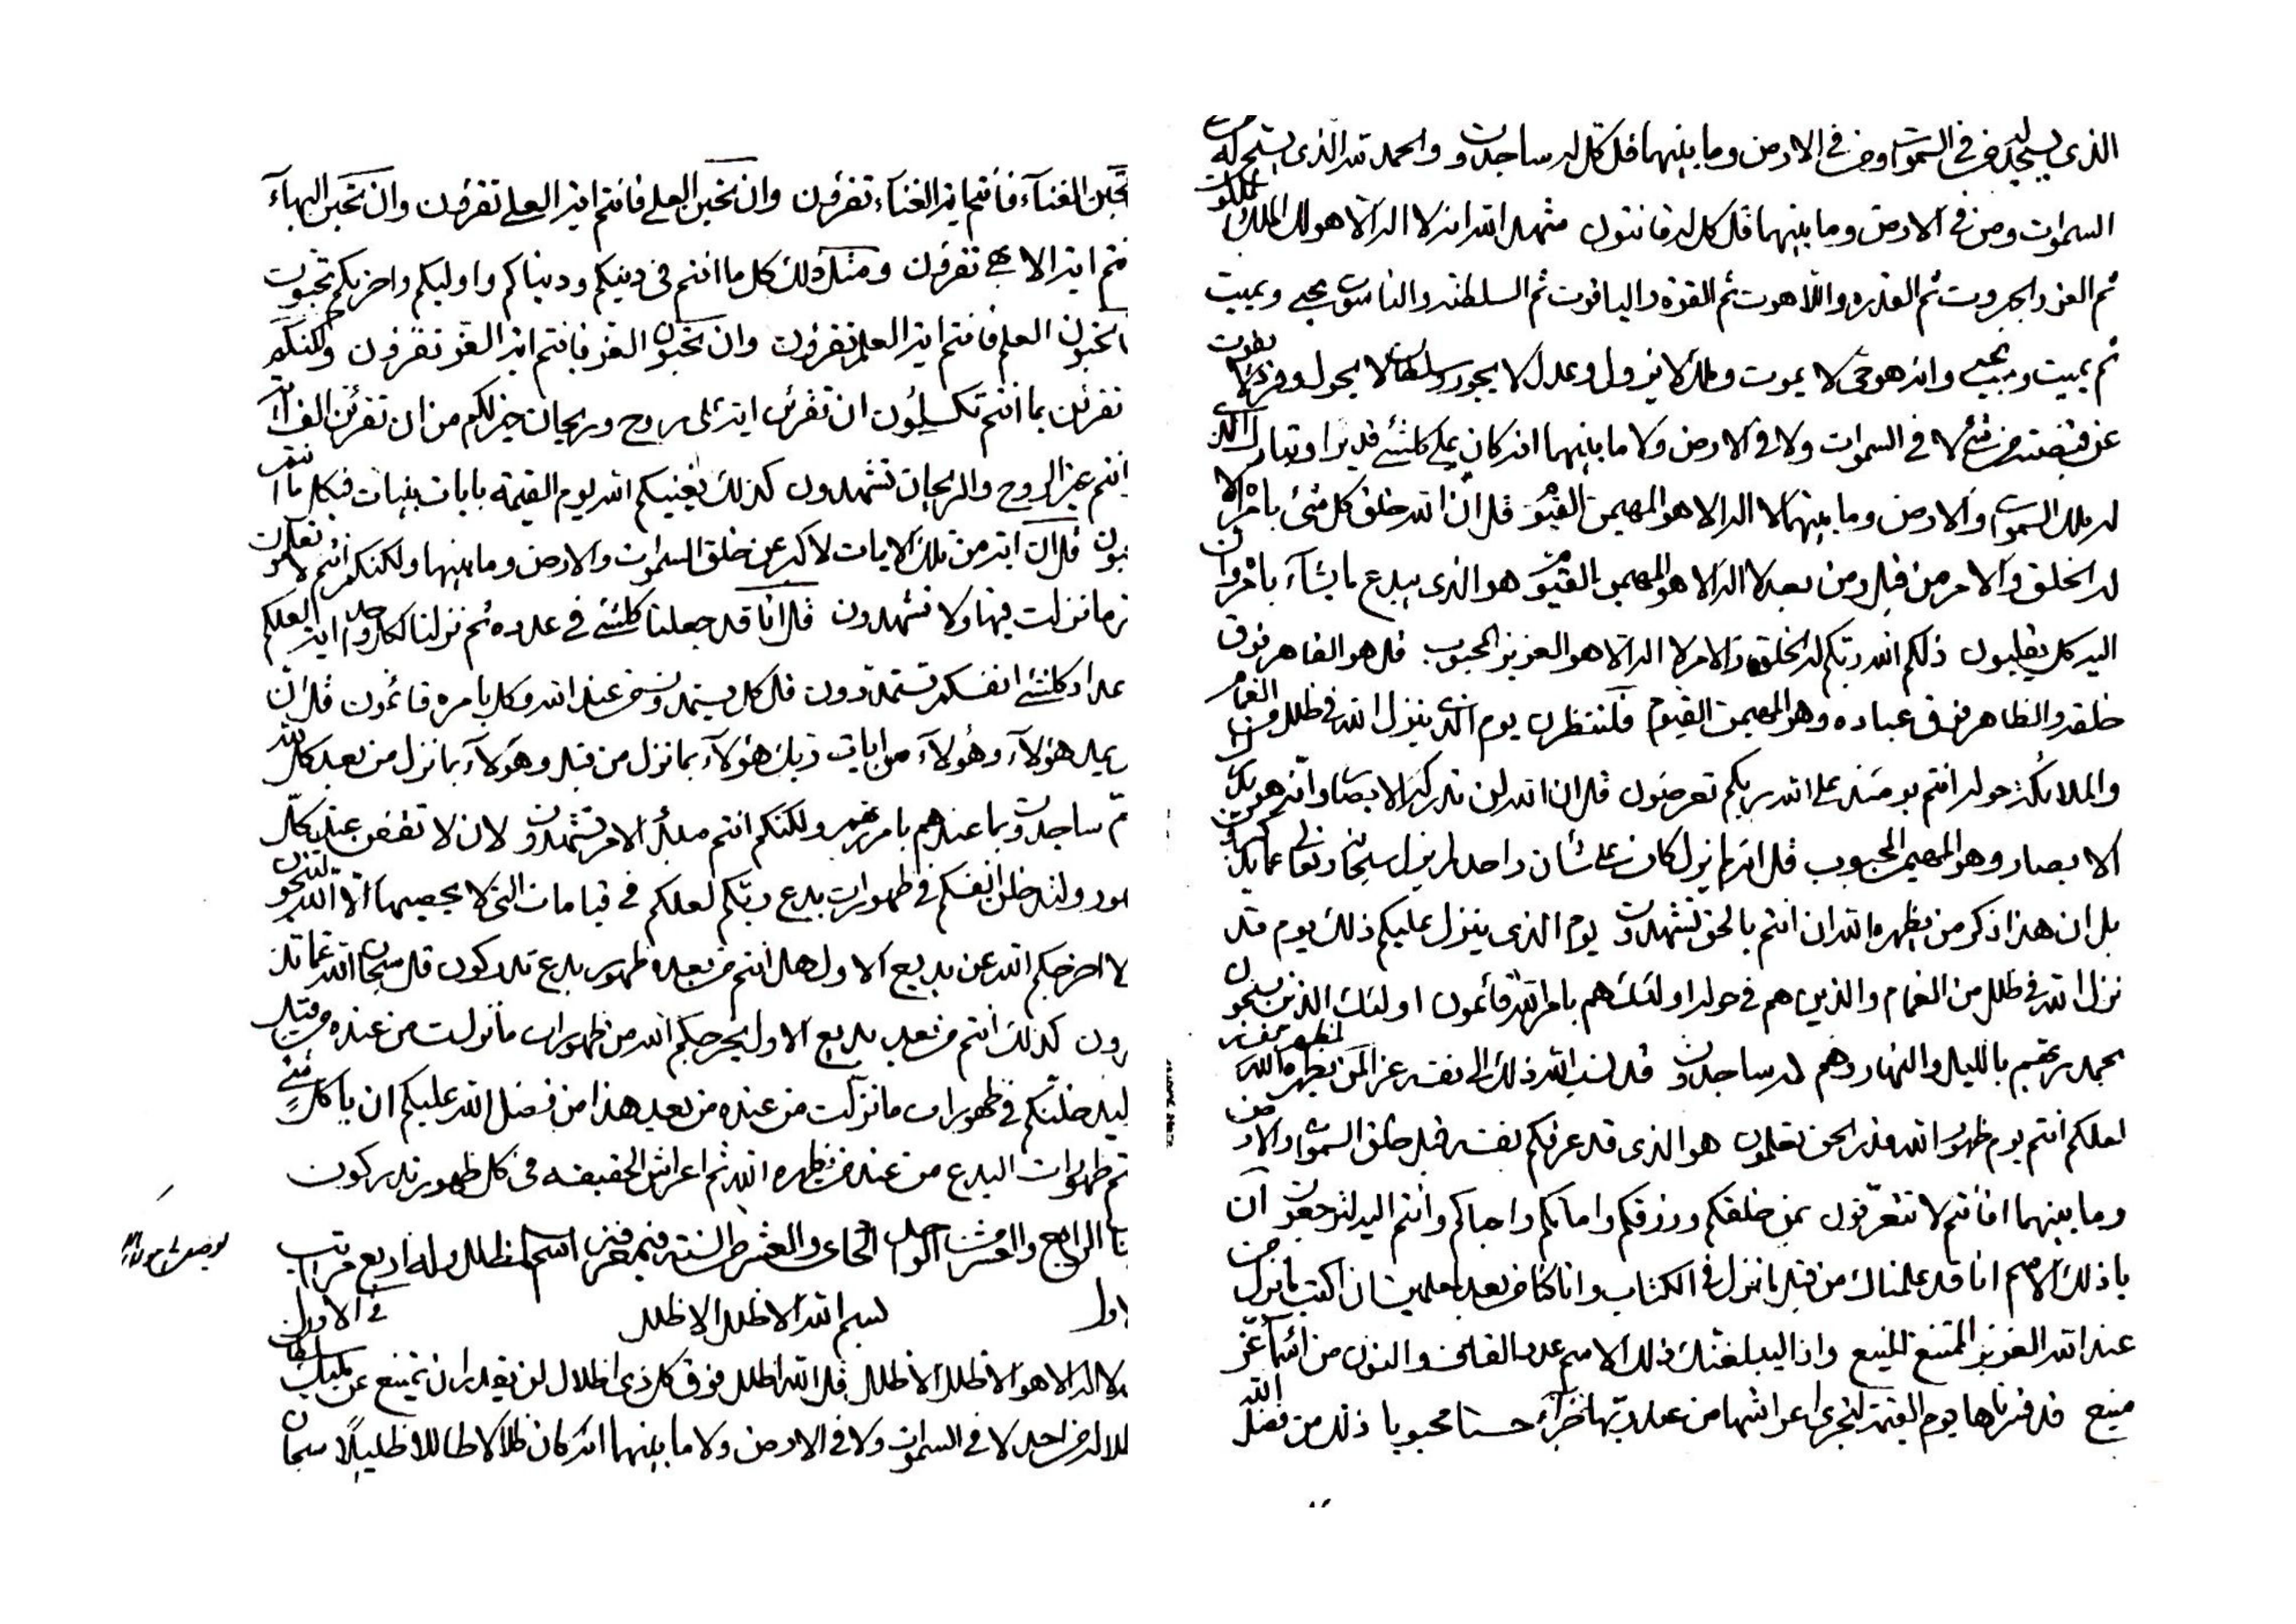 الذي يسجد له من في السموات ومن في الارض وما بينهما قل كل له ساجدون والحمد لله الذي يسبح له من في
السموات ومن في الارض وما بينهما قل كل له قانتون شهد الله انه لا اله الا هو له الملك والملكوت
ثم العز والجبروت ثم القدرة واللاهوت ثم القوة والياقوت ثم السلطنة والناسوت يحيي ويميت
ثم يميت ويحيي وانه هو حي لا يموت وملك لا يزول وعدل لا يجور وسلطان لا يحول وفرد لا يفوت
عن قبضته من شيء لا في السموات ولا في الارض ولا ما بينهما انه كان على كلشيء قديرا وتبارك الذي
له ملك السموات والارض وما بينهما لا اله الا هو المهيمن القيوم قل ان الله خلق كل شيء بامره الا
له الخلق والامر من قبل ومن بعد لا اله الا هو المهيمن القيوم هو الذي يبدع ما يشاء بامره وان
اليه كل يقلبون ذلكم الله ربكم له الخلق والامر لا اله الا هو العزيز المحبوب قل هو القاهر فوق
خلقه والظاهر فوق عباده وهو المهيمن القيوم فلتنتظرن يوم الذي ينزل الله في ظلل من الغمام
والملائكة حوله انتم يومئذ على الله ربكم تعرضون قل ان الله لن تدركه الابصار وانه هو يدرك
الابصار وهو المهيمن المحبوب قل انه لم يزل كان على شان واحد لم يزل سبحانه وتعالى عما يذكرون
بل ان هذا ذكر من يظهره الله ان انتم بالحق تشهدون يوم الذي ينزل عليكم ذلك يوم قد
نزل الله في ظلل من الغمام والذين هم في حوله اولئك هم بامر الله قائمون اولئك الذين يسبحون
بحمد ربهم بالليل والنهار وهم له ساجدون قد نسب الله ذلك الى نفسه عزا لمن يظهره الله لمظهر نفسه
لعلكم انتم يوم ظهور الله قدر الحق تعلمون هو الذي قد عرفكم نفسه قبل خلق السموات والارض
وما بينهما افانتم لا تتعرفون بمن خلقكم ورزقكم واماتكم واحياكم وانتم اليه لترجعون ان
يا ذلك الاسم انا قد علمناك من قبل ما نزل في الكتاب وانا كنا من بعد لمعلمين ان اكتب ما نزل من
عند الله العزيز الممتنع المنيع واذا اليه بلغتك ذلك الاسم عدد القاف والنون من اسماء عز
منيع قد قدرناها يوم القيمة لتجزى اعراشها من عند ربها جزاء حسنا محبوبا ذلك من فضل الله
تحبن الغناء فانتم اية الغناء تقرؤن وان تحبن العلى فانتم اية العلى تقرؤن وان تحبن البهاء
فانتم اية الابهى تقرؤن ومثل ذلك كل ما انتم في دينكم ودنياكم واوليكم واخريكم تحبون
تحبون العلم فانتم اية العلم تقرؤن وان تحبون العز فانتم اية العز تقرؤن ولكنكم
تقرئن بما انتم تكسلون ان تقرئن اية على روح وريحان خير لكم من ان تقرئن الف اية
وانتم غير الروح والريحان تشهدون كذلك يغنيكم الله يوم القيمة بايات بينات فكل ما انتم
تحبون قل ان اية من تلك الايات لاكبر عن خلق السموات والارض وما بينهما ولكنكم انتم لا تعلمون
ما نزلت فيها ولا تشهدون قل انا قد جعلنا كلشيء في عدده ثم نزلنا لكل واحد اية لعلكم
عداد كلشيء انفسكم تستمدون قل كل يستمدون من عند الله وكل بامره قائمون قل ان
يمد هؤلاء وهؤلاء من ايات ربك هؤلاء بما نزل من قبل وهؤلاء بما نزل من بعد كل لله
ساجدون وبما عندهم بامر ربهم ولكنكم انتم مبدء الامر تشهدون لان لا تقفن عند كل
ظهور ولتدخلن انفسكم في ظهورات بدع ربكم لعلكم في قيامات التي لا يحصيها الا الله لتنجون
اخرجكم الله عن بديع الاول هل انتم من بعد ظهور بدع تدركون قل سبحان الله عما تذ
كرون كذلك انتم من بعد بديع الاول يخرجكم الله من ظهورات ما نزلت من عنده من قبل
ليدخلنكم في ظهورات ما نزلت من عنده من بعد هذا من فضل الله عليكم ان يا كل شيء
انتم ظهورات البدع من عند من يظهره الله ثم اعراش الحقيقه في كل ظهور تدركون
الرابع والعشر من الواحد الحادي والعشر من السنة في معرفة اسم المظلل وله اربع مراتب
الاول في الاول
بسم الله الاظلل الاظلل
لا اله الا هو الاظلل الاظلل قل الله اظلل فوق كل ذي اظلال لن يقدر ان يمتنع عن مليك سلطان
اظلاله من احد لا في السموات ولا في الارض ولا ما بينهما انه كان ظلالا ظاللا ظليلا سبحان